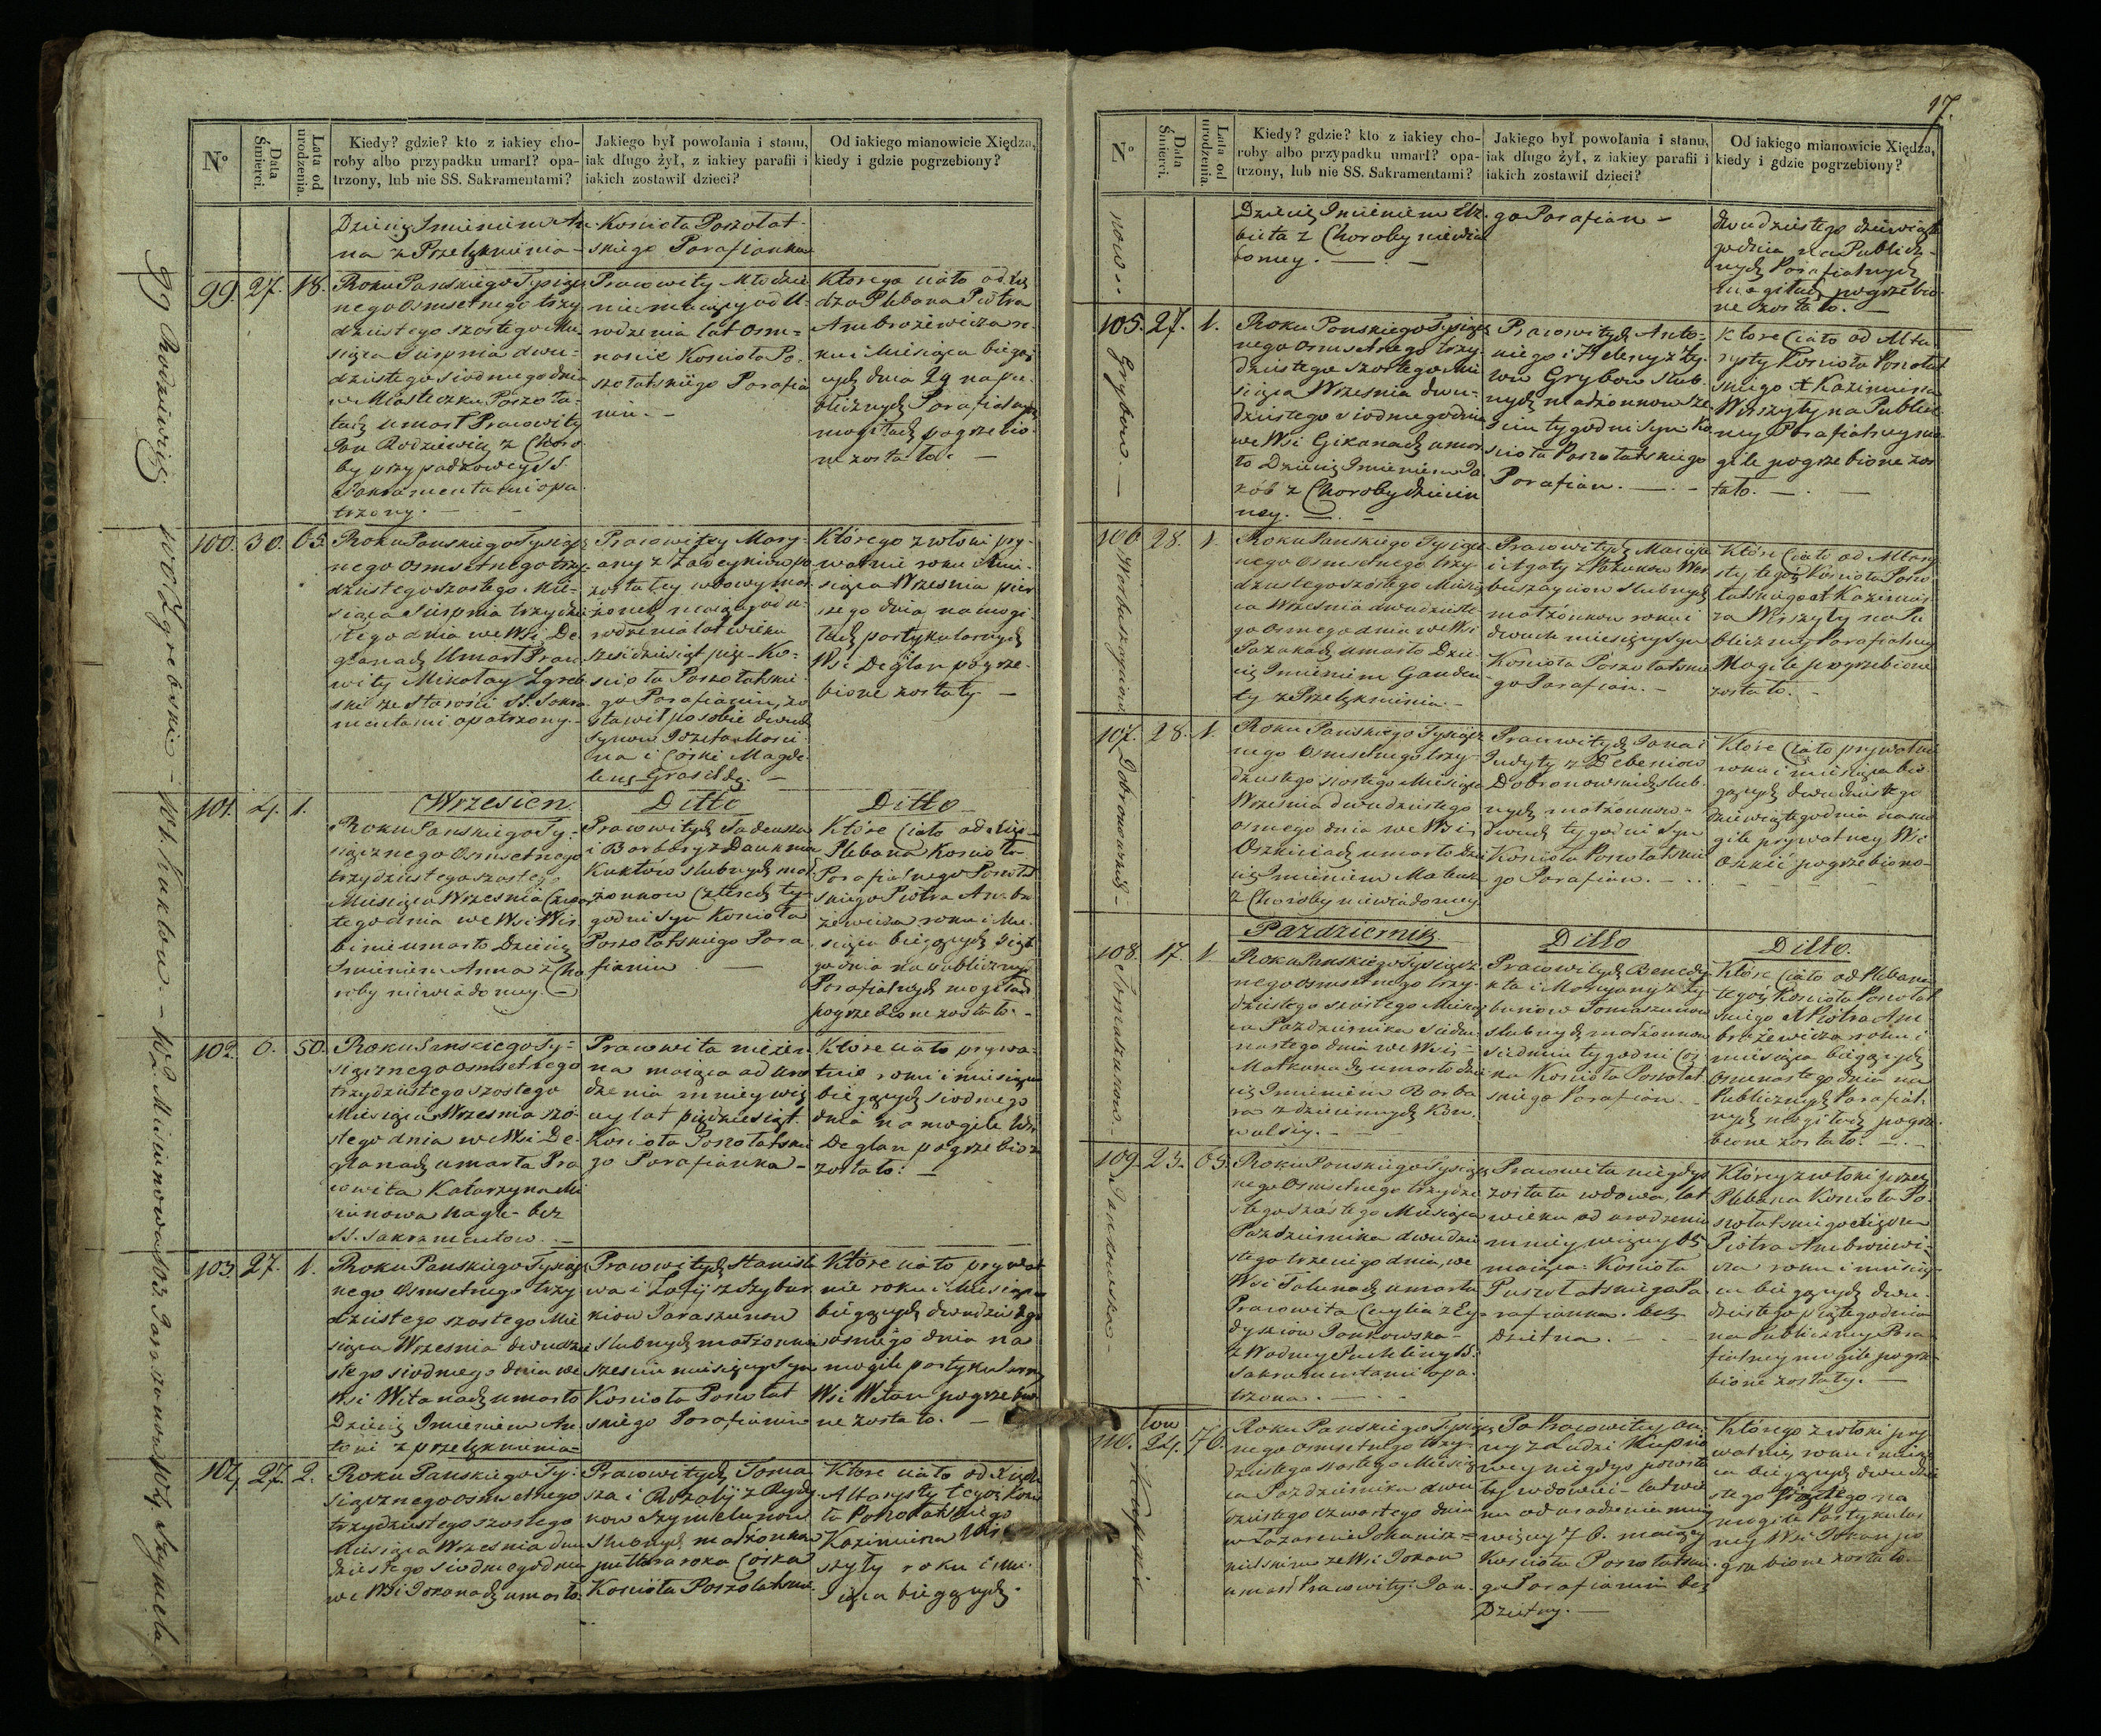 17.
Nº
Data Śmierci.
Lata od urodzenia.
Kiedy? gdzie? kto z iakiey cho-
roby albo przypadku umarł? opa-
trzony, lub nie SS. Sakramentami?
Jakiego był powołania i stanu,
iak długo żył, z iakiey parafii i
iakich zostawił dzieci?
Od iakiego mianowicie Xiędza,
kiedy i gdzie pogrzebiony?
Dziecię Imieniem An
na z Przelęknienia -
Kościoła Poszołat
skiego Parafianka
99 Rodziewicz.
99. 27. 18.
Roku Pańskiego Tysiącz
nego osmsetnego trzy
dziestego szostego Mie
siąca Sierpnia dwu-
dziestego siodmego dnia
w Miasteczku Poszoła-
tach umarł Pracowity
Jan Rodziewicz z Choro
by przypadkowey SS
Sakramentami opa
trzony. -
Pracowity Młodzie
niec maiący od U-
rodzenia lat osm-
naście Kościoła Po.
szołatskiego Parafia
nin. -
Ktorego ciało od Xię
dza Plebana Piotra
Ambrożewicza ro
ku i Miesiąca bieżą
cych dnia 29 na pu
blicznych Parafialnych
mogiłach pogrzebio
ne zostało. -
100 Zgrebski -
100. 30. 65.
Roku Pańskiego Tysiącz
nego osmsetnego trzy
dziestego szostego Mie-
siąca Sierpnia trzydzie
stego dnia we Wsi De
glanach Umarł Praco
wity Mikołay Zgreb
ski ze Starości SS. Sakra
mentami opatrzony. -
Pracowitey Mary-
anny z
zostałey wdowy mał
żonek maiący od u-
rodzenia lat wieku
sześćdziesiąt pięć Ko-
ścioła Poszołatskie
go Parafianin, zo
stawił po sobie dwuch
Synow Jozefa Marci
na i Corki Magde
lenę Grasildę. -
Którego zwłoki pry-
watnie roku i Mie-
siąca Wrzesnia pier
szego dnia na mogi
łach partykularnych
Wsi Deglan pogrze-
bione zostały -
101. Kuktow. -
101. 4. 1.
Wrzesien.
Ditto
Ditto
Roku Pańskiego Ty-
siącznego Osmsetnego
trzydziestego szostego
Miesiąca Wrzesnia Czwar
tego dnia we Wsi Wir
binie umarło Dziecię
Imieniem Anna z Cho
roby niewiadomey. -
Pracowitych Tadeusza
i Barbary z Daukszow
Kuktów slubnych mał
żonkow Czterech ty-
godni Syn Kościoła
Poszołatskiego Para
fianin -
Które Ciało od Xię-
Plebana Kościoła
Parafialnego Poszołat
skiego Piotra Ambro
żewicza roku i Mie
siąca bieżących Pięt
go dnia na publicznych
Parafialnych mogiłach
pogrzebione zostało. -
102. 6. 50.
Roku Panskiego Ty-
siącznego osmsetnego
trzydziestego szostego
Miesiąca Wrzesnia szo-
stego dnia we Wsi De-
glanach umarła Pra
cowita Katarzyna Mi
siunowa nagle bez
SS. Sakramentow. -
Pracowita
na maiąca od uro
dzenia mniey wię
cey lat pięćdziesiąt.
Kościoła Poszołatskie
go Parafianka -
Ktore ciało prywa-
tnie roku i miesiąca
bieżących siodmego
dnia na mogile Wsi
Deglan pogrzebione
zostało: -
103. 27. 1.
Roku Pańskiego Tysiącz
nego Osmsetnego trzy
dziestego szostego Mie
siąca Wrzesnia dwudzie
stego siodmego dnia we
Wsi Witanach umarło
Dziecię Imieniem An
toni z przelęknienia -
Pracowitych Stanisła
wa i Zofij z Szybur
kiow Taraszunow
Slubnych małżonkow
sześciu miesięcy Syn
Kościoła Poszołat
skiego Parafianin
Które ciało prywat
nie roku i Miesiąca
bieżących dwudziestego
osmego dnia na
mogile partykularney
Wsi Witan pogrzebio
ne zostało. -
104. 27. 2.
Roku Pańskiego Ty-
siącznego Osmsetnego
trzydziestego szostego
Miesiąca Wrzesnia dwu
dziestego siodmego dnia
we Wsi Jozonach umarło
Pracowitych Toma
sza i Rozalij z Ryng
kow Szymelunow
Slubnych małżonkow
pułtora roka Corka
Kościoła Poszołatskie
Ktore ciało od Xiędza
Altarysty tegoż Kościo
ła Poszołatskiego
Kazimierza Wir
szyty roku i mie
siąca bieżących.
Nº
Data Śmierci.
Lata od urodzenia.
Kiedy? gdzie? kto z iakiey cho-
roby albo przypadku umarł? opa-
trzony, lub nie SS. Sakramentami?
Jakiego był powołania i stanu,
iak długo żył, z iakiey parafii i
iakich zostawił dzieci?
Od iakiego mianowicie Xiędza,
kiedy i gdzie pogrzebiony?
Dziecię Imieniem Elż
bieta z Choroby niewia
domey. -
go Parafian -
dwudziestego dziewiąte
go dnia na Publicz-
nych Parafialnych
mogiłach pogrzebio
ne zostało. -
Grybow. -
105. 27. 1.
Roku Pańskiego Tysiącz
nego osmsetnego trzy-
dziestego szostego Mie
siąca Wrzesnia dwu-
dziestego siodmego dnia
we Wsi Gikanach umar
ło Dziecię Imieniem Ja
kób z Choroby dziecin
ney. -
Pracowitych Anto-
niego i Heleny z Ty-
wu Grybow slub
nych małżonkow sze
ściu tygodni Syn Ko
ścioła Poszołatskiego
Parafian. -
Ktore Ciało od Alta
rysty Kościoła Poszołat
skiego X Kazimierza
Wirszyty na Publicz
ney Parafialney mo
gile pogrzebione zos
tało. -
106. 28. 1.
Roku Pańskiego Tysiącz
nego osmsetnego trzy-
dziestego szostego Miesią
ca Wrzesnia dwudzieste
go osmego dnia we Wsi
umarło Dzie
cię Imieniem Gauden
ty z Przelęknienia. -
Pracowitych Macieja
i Agaty z
małżonkow roku i
dwuch miesięcy Syn
Kościoła Poszołatskie
go Parafian. -
Które Ciało od Altary
sty tegoż Kościoła Poszo
łatskiego X Kazimie
rza Wirszyty na Pu
bliczney Parafialney
Mogile pogrzebione
zostało. -
Dobronowskich -
107. 28. 1.
Roku Pańskiego Tysiącz
nego Osmsetnego trzy-
dziestego szostego Miesiąca
Wrzesnia dwudziestego
osmego dnia we Wsi
Oszkiciach umarło dzie
cię Imieniem Mateusz
z Choroby niewiadomey
Pracowitych Jana i
Judyty z Debeniow
Dobronowskich slub
nych małżonkow -
dwuch tygodni Syn
Kościoła Poszołatskie
go Parafian. -
Ktore Ciało prywatnie
roku i miesiąca bie
żących dwudziestego
dziewiątego dnia na mo
gile prywatney Wsi
Oszkić pogrzebiono -
Tomaszunow.
108. 17. 1.
Pazdziernik
Ditto
Ditto.
Roku Pańskiego Tysiącz
nego osmsetnego trzy-
dziestego szostego Miesią
ca Pazdziernika siedm
nastego dnia we Wsi
Matkunach umarło dzie
cię Imieniem Barba
ra z dziecinnych Kon
wulsiy. -
Pracowitych Benedy
kta i Maryanny z Ty
bunow Tomaszunow
slubnych małżonkow
siedmiu tygodni Cor
ka Kościoła Poszołat
skiego Parafian. -
Które Ciało od Plebana
tegoż Kościoła Poszołat
skiego X Piotra Am
brożewicza roku i
miesiąca bieżących
osmnastego dnia na
Publicznych Parafial
nych mogiłach pogrze-
bione zostało. -
Jankowska -
109. 23. 65.
Roku Pańskiego Tysiącz
nego Osmsetnego trzydzie
stego szostego Miesiąca
Pazdziernika dwudzie
stego trzeciego dnia, we
Wsi umarła
Pracowita Cecylia z Ey
dykiow Jankowska -
z Wodney Puchliny SS.
Sakramentami opa.
trzona. -
Pracowita niegdyś
została wdowa, lat
wieku od urodzenia
mniey więcey 65
maiąca. Kościoła
Poszołatskiego Pa
rafianka. bez
Dzietna. -
Którey zwłoki przez
Plebana Kościoła Po
szołatskiego Xiędza
Piotra Ambrożewi-
cza roku i miesią-
ca bieżących dwu-
dziestego piątego dnia
na Publiczney Para-
fialney mogile pogrze-
bione zostały. -
110. 24. 70.
Roku Pańskiego Tysiącz
nego osmsetnego trzy-
dziestego szostego Miesią
ca Pazdziernika dwu
dziestego czwartego dnia
w Łazarecie Johanisz-
kielskim ze Wsi Jozan
umarł Pracowity Jan.
Po Pracowitey An
ny
wey niegdyś pozosta
ły wdowiec - lat wie
ku od urodzenia mniey
więcey 70. maiący
Kościoła Poszołatskie
go Parafianin bez
Dzietny. -
Którego zwłoki pry
watnie, roku i miesią
ca bieżących dwudzie
stego piątego na
mogile Partykular
ney Wsi Jozan po
grzebione zostało. -